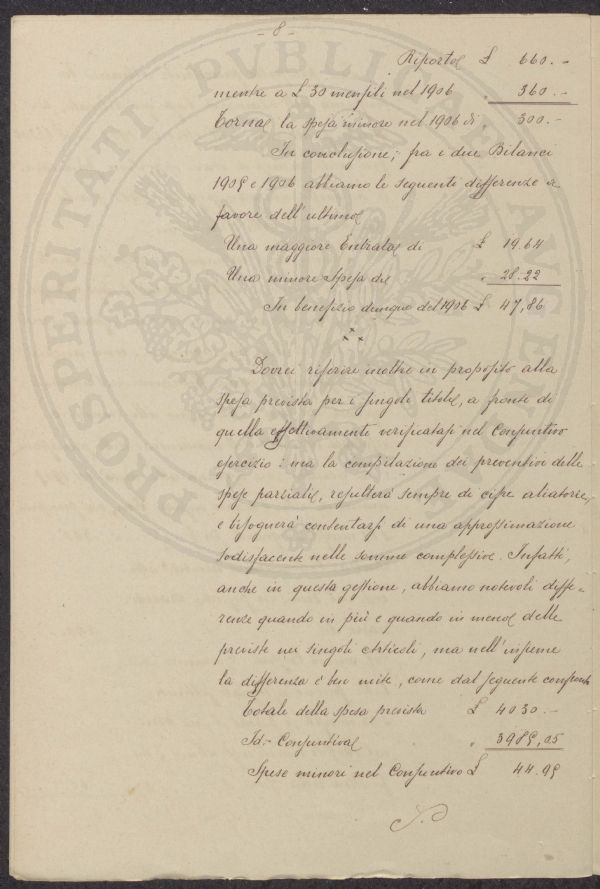 - 8 -
PROSPERITATI PVBLICAE AVGENDAE
Riporto £ 660.-
mentre a £ 30 mensili nel 1906 " 360.-
Torna la spesa minore nel 1906 di " 300.-
In conclusione, fra i due Bilanci
1905 e 1906 abbiamo le seguenti differenze a
favore dell'ultimo
Una maggiore Entrata di £ 19.64
Una minore Spesa di " 28.22
In benefizio dunque del 1906 £ 47,86
Dovrei riferire inoltre in proposito alla
spesa prevista per i singoli titoli, a fronte di
quella effettivamente verificatasi nel Consuntivo
esercizio: ma la compilazione dei preventivi delle
spese parziali, resulterà sempre di cifre aliatorie,
e bisognerà contentarsi di una approssimazione
sodisfacente nelle somme complessive. Infatti,
anche in questa gestione, abbiamo notevoli diffe-
renze quando in più e quando in meno delle
previste nei singoli Articoli, ma nell'insieme
la differenza è ben mite, come dal seguente confronto
Totale della spesa prevista £ 4030.-
Id.- Consuntiva " 3985,05
Spese minori nel Consuntivo £ 44.95